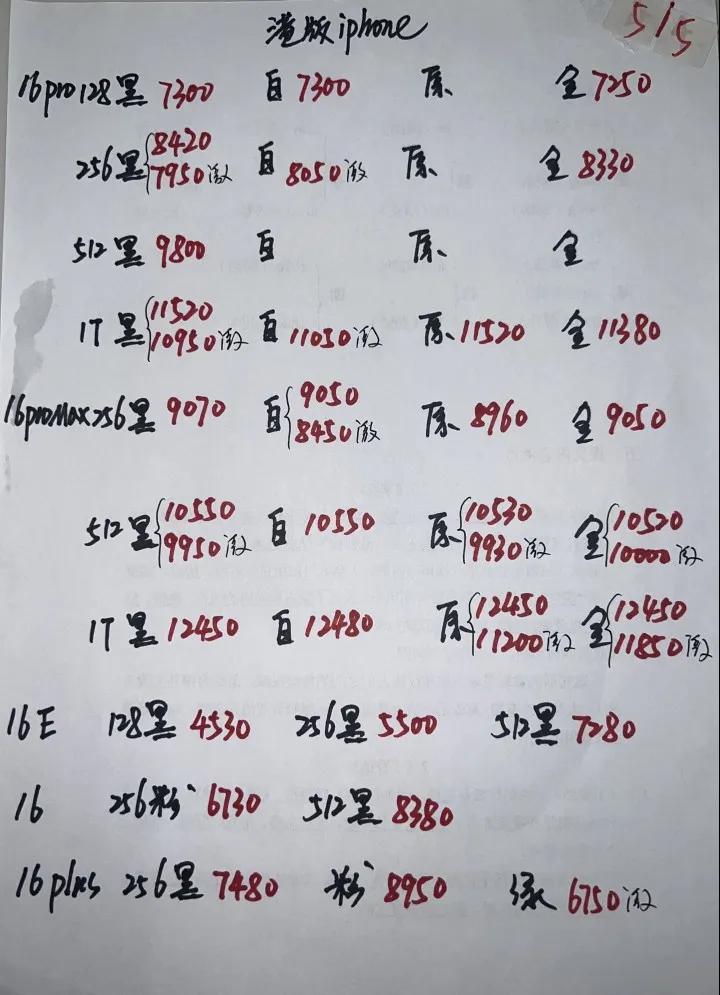 港版iphone 5/5
16pro128黑 7300 白 7300 原 金 7250
256黑 8420 7950激 白 8050激 原 金 8330
512黑 9800 白 原 金
1T黑 11520 10950激 白 11050激 原 11520 金 11380
16proMax256黑 9070 白 9050 8450激 原 8960 金 9050
512黑 10550 9950激 白 10550 原 10530 9930激 金 10520 10000激
1T黑 12450 白 12480 原 12450 11200激 金 12450 11850激
16E 128黑 4530 256黑 5500 512黑 7280
16 256粉 6730 512黑 8380
16plus 256黑 7480 粉 8950 绿 6750激